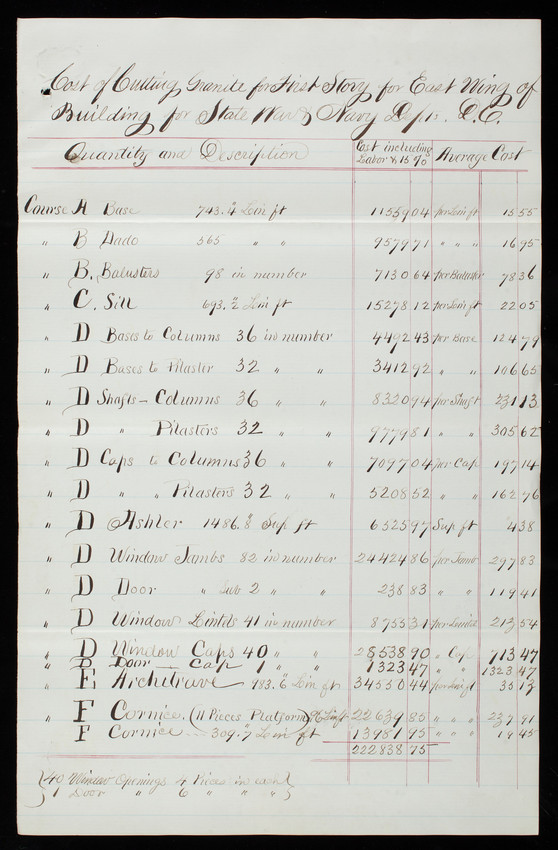 Cost of Cutting Granite for First Story for East Wing of
Building for State War & Navy Dept. D.C.
Quantity and Description Cost including Labor & 15 % Average Cost
Course A Base 743.4 Lin ft 11559 04 per Lin ft 15 55
" B Dado 565 " " 9579 71 " " " 16 95
" B. Balusters 98 in number 7130 64 per Baluster 78 36
" C. Sill 693.2 Lin ft 15278 12 per Lin ft 22 05
" D Bases to Columns 36 in number 4492 43 per Base 124 79
" D Bases to Pilaster 32 " " 3412 92 " " 106 65
" D Shafts - Columns 36 " " 8320 94 per Shaft 231 13
" D " Pilasters 32 " " 9779 81 " " 305 62
" D Caps to Columns 36 " " 7097 04 per Cap 197 14
" D " " Pilasters 32 " " 5208 52 " " 162 76
" D Ashler 1486.8 Sup ft 6525 97 Sup ft 4 38
" D Window Jambs 82 in number 24424 86 per Jamb 297 83
" D Door " 2 " " 238 83 " " 119 41
" D Window Lintels 41 in number 8755 31 per Lintel 213 54
" D Window Caps 40 " " 28538 90 " Cap 713 47
" D Door Cap 1 " " 1323 47 " " 1323 47
" E, Architrave 983.6 Lin ft 34550 44 per Lin ft 35 13
" F Cornice, (11 Pieces Platform) Lin ft 22639 85 " " " 237 91
" F Cornice 309.7 Lin ft 13981 95 " " " 45
222838 75
{ 40 Window Openings 4 Pieces in each }
Door " 6 " " "